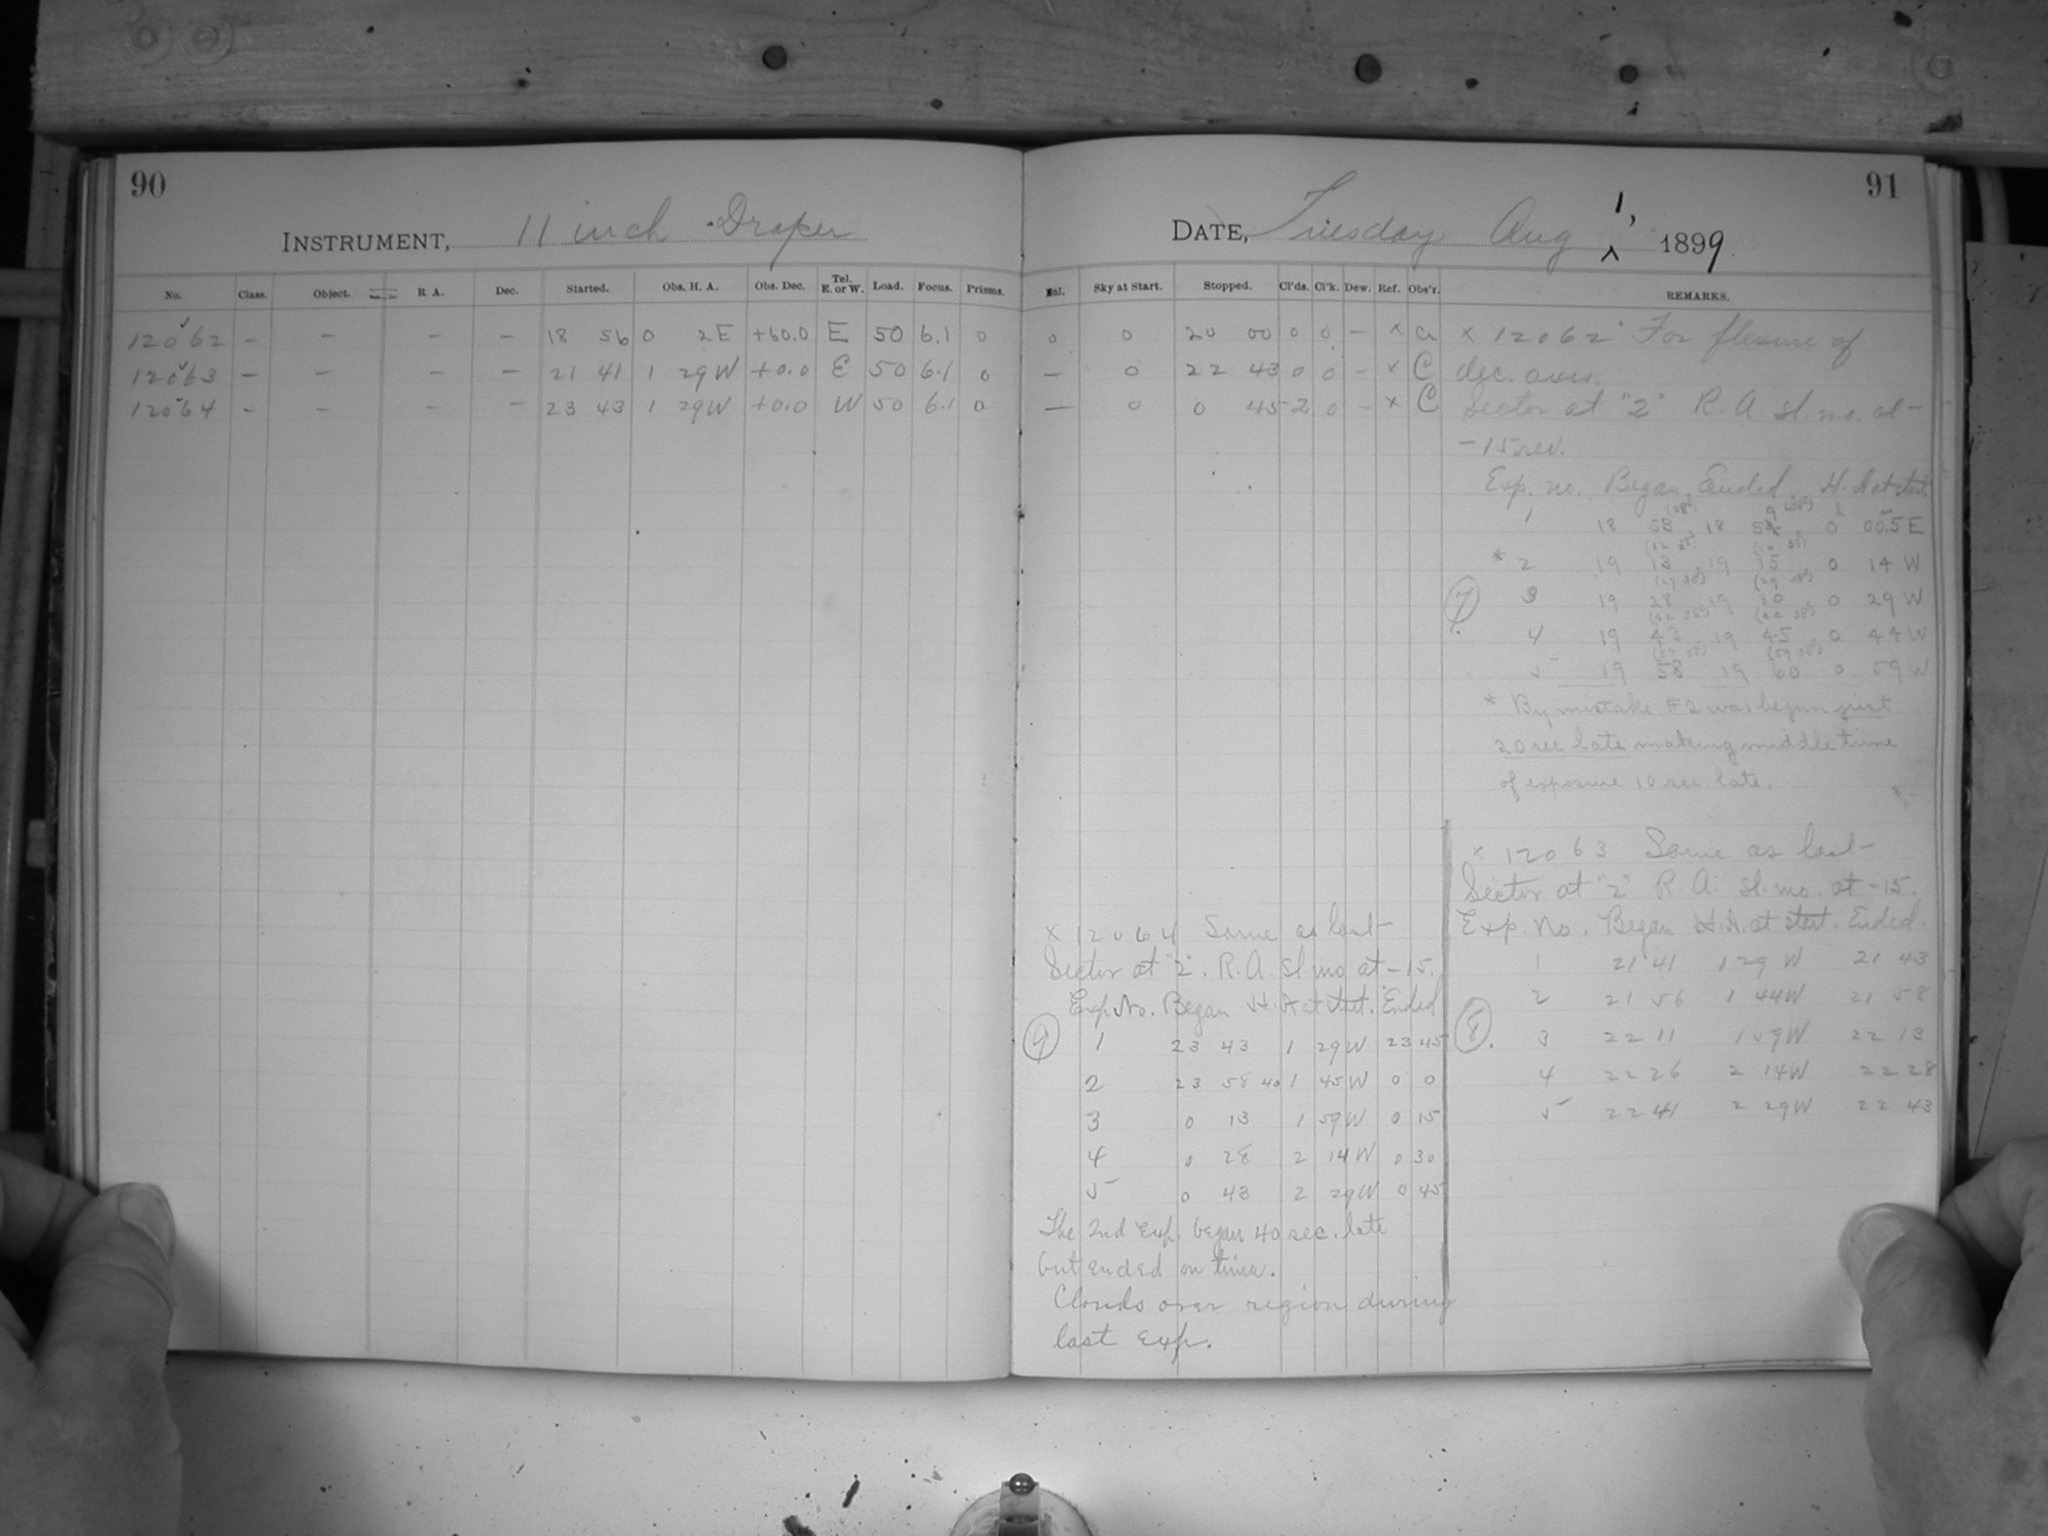 90
INSTRUMENT, 11 inch Draper
No. Class. Object. R. A. Dec. Started. Obs. H. A. Obs. Dec. Tel. E. or W. Load. Focus. Prisms.
12062 - - - - 18 56 0 2E +60.0 E 50 6.1 0
12063 - - - - 21 41 1 29W +0.0 E 50 6.1 0
12064 - - - - 23 43 1 29W +0.0 W 50 6.1 0
91
DATE, Tuesday Aug 1, 1899
Sky at Start. Stopped. Cl'ds. Cl'k. Dew. Ref. Obs'r. REMARKS.
0 0 20 00 0 0 - x a x 12062 For flexure of
— 0 22 43 0 0 - x C dec. axis.
— 0 0 45 2 0 - x C Sector at "2" R. A. sl. mo. at -
-15 rev.
Exp. no. Began Ended H. A at start
1 18 58 18 0 00.5 E
* 2 19 13 19 15 0 14 W
7. 3 19 28 19 30 0 29 W
4 19 43 19 45 0 44 W
5 19 58 19 60 0 59 W
* By mistake #2 was begun just
20 sec late making middle time
of exposure 10 sec late.
x 12063 Same as last
Sector at "2" R. A. sl. mo. at -15.
Exp. No. Began H. A. at start. Ended.
1 21 41 1 29 W 21 43
2 21 56 1 44W 21 58
8. 3 22 11 1 59W 22 13
4 22 26 2 14W 22 28
5 22 41 2 29W 22 43
x 12064 Same as last
Sector at "2". R. A. sl. mo at -15.
Exp No. Began H. A at start. Ended
9 1 23 43 1 29W 23 45
2 23 58 40 1 45W 0 0
3 0 13 1 59W 0 15
4 0 28 2 14W 0 30
5 0 43 2 29W 0 45
The 2nd Exp. began 40 sec. late
but ended on time.
Clouds over region during
last Exp.